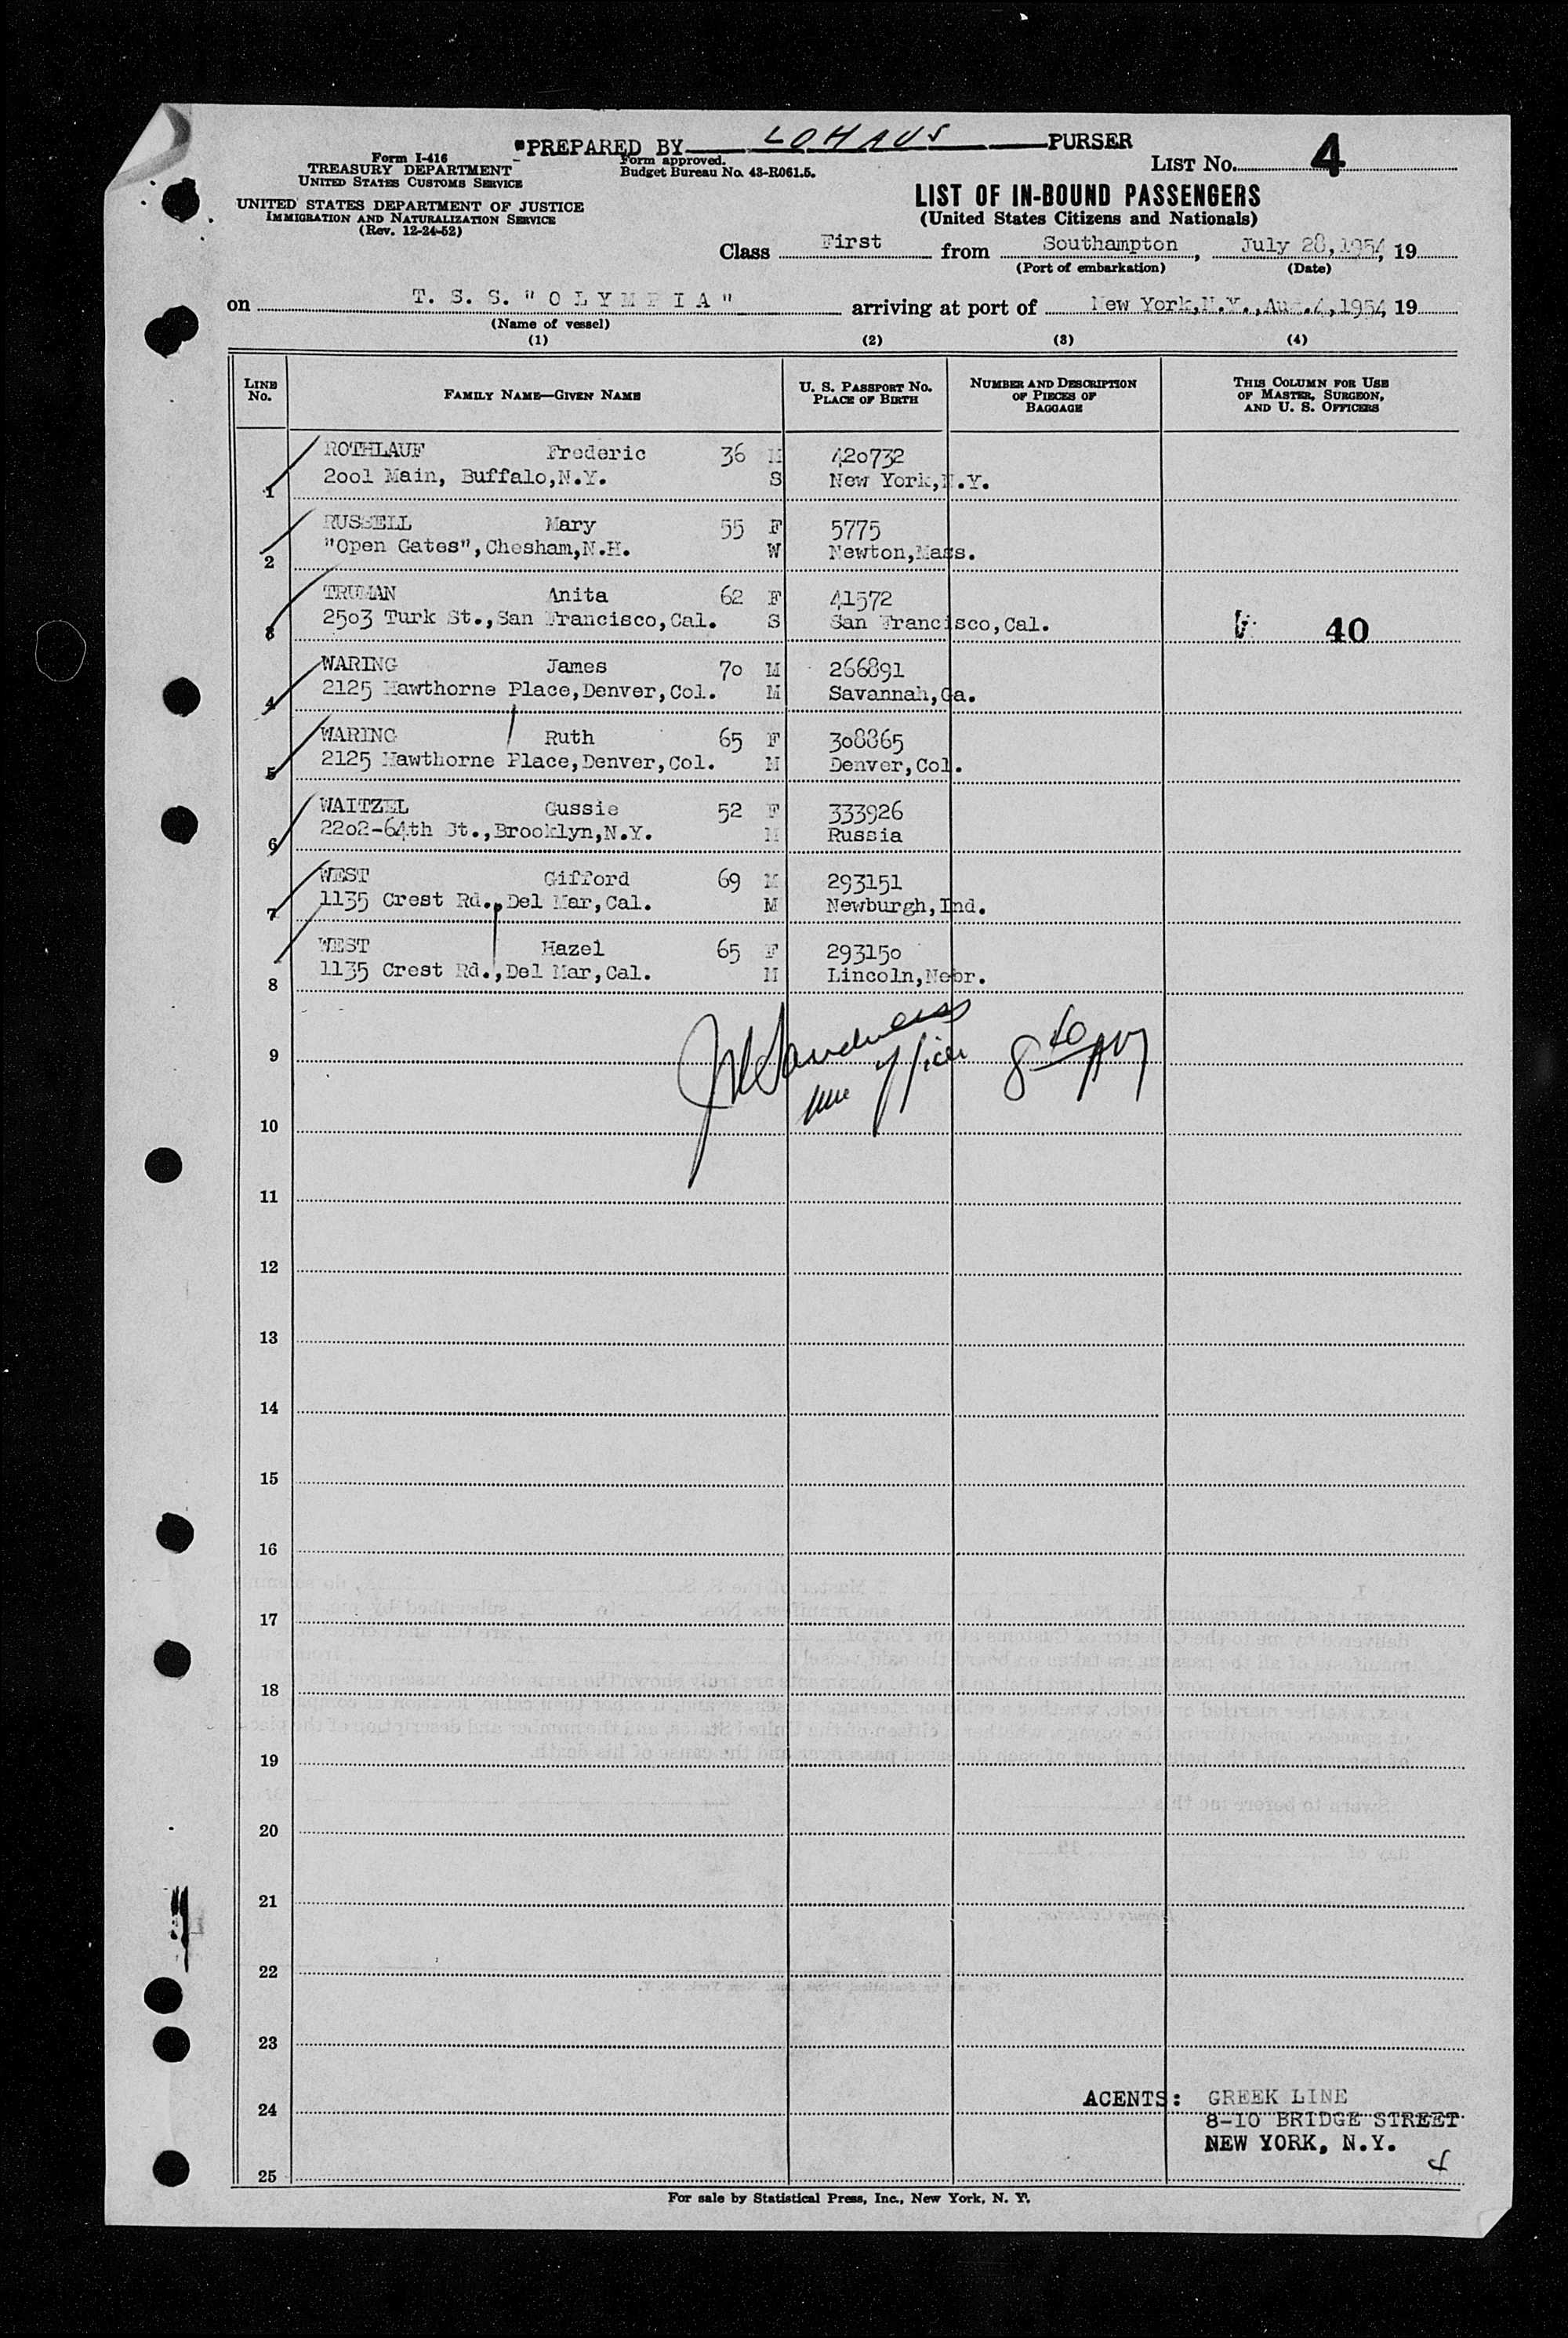 "PREPARED BY LOHAUS PURSER
Form I-416
TREASURY DEPARTMENT
UNITED STATES CUSTOMS SERVICE
Form approved.
Budget Bureau No. 43-R061.5.
LIST No. 4
UNITED STATES DEPARTMENT OF JUSTICE
IMMIGRATION AND NATURALIZATION SERVICE
(Rev. 12-24-52)
LIST OF IN-BOUND PASSENGERS
(United States Citizens and Nationals)
Class First from Southampton, July 28,1954, 19
(Port of embarkation) (Date)
on T. S. S. "OLYMPIA" arriving at port of New York,N.Y.,Aug.4,1954, 19
(Name of vessel)
(1) (2) (3) (4)
LINE No. FAMILY NAME—GIVEN NAME U. S. PASSPORT No. PLACE OF BIRTH NUMBER AND DESCRIPTION OF PIECES OF BAGGAGE THIS COLUMN FOR USE OF MASTER, SURGEON, AND U. S. OFFICERS
ROTHLAUF Frederic 36 M 420732
1 2001 Main, Buffalo,N.Y. S New York,N.Y.
RUSSELL Mary 55 F 5775
2 "Open Gates",Chesham,N.H. W Newton,Mass.
TRUMAN Anita 62 F 41572
3 2503 Turk St.,San Francisco,Cal. S San Francisco,Cal. 40
WARING James 70 M 266891
4 2125 Hawthorne Place,Denver,Col. M Savannah,Ga.
WARING Ruth 65 F 308865
5 2125 Hawthorne Place,Denver,Col. M Denver,Col.
WAITZEL Gussie 52 F 333926
6 2202-64th St.,Brooklyn,N.Y. M Russia
WEST Gifford 69 M 293151
7 1135 Crest Rd.,Del Mar,Cal. M Newburgh,Ind.
WEST Hazel 65 F 293150
8 1135 Crest Rd.,Del Mar,Cal. M Lincoln,Nebr.
9
10
11
12
13
14
15
16
17
18
19
20
21
22
23
24
25
AGENTS: GREEK LINE
8-10 BRIDGE STREET
NEW YORK, N.Y.
For sale by Statistical Press, Inc., New York, N. Y.